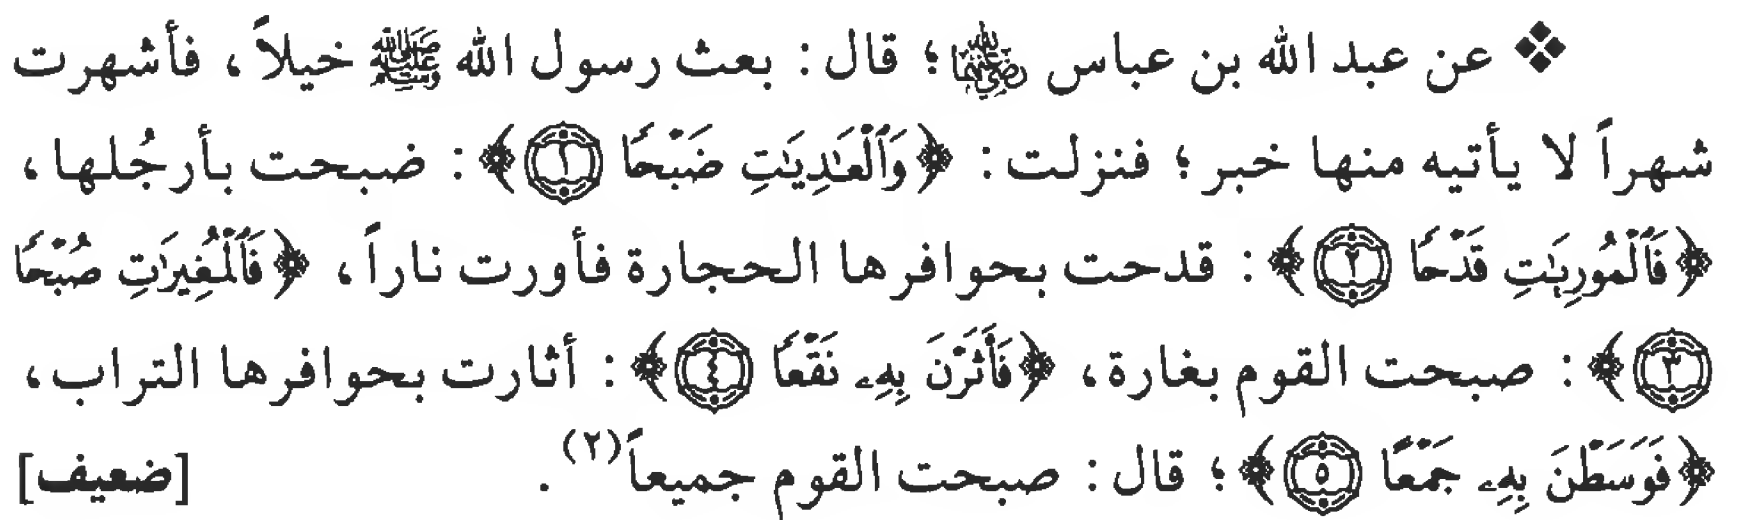 ❖ عن عبد الله بن عباس رضي الله عنهما؛ قال: بعث رسول الله ﷺ خيلاً، فأشهرت
شهراً لا يأتيه منها خبر؛ فنزلت: ﴿وَٱلْعَٰدِيَٰتِ ضَبْحًا ۝١﴾: ضبحت بأرجُلها،
﴿فَٱلْمُورِيَٰتِ قَدْحًا ۝٢﴾: قدحت بحوافرها الحجارة فأورت ناراً، ﴿فَٱلْمُغِيرَٰتِ صُبْحًا
۝٣﴾: صبحت القوم بغارة، ﴿فَأَثَرْنَ بِهِۦ نَقْعًا ۝٤﴾: أثارت بحوافرها التراب،
﴿فَوَسَطْنَ بِهِۦ جَمْعًا ۝٥﴾؛ قال: صبحت القوم جميعاً(٢). [ضعيف]